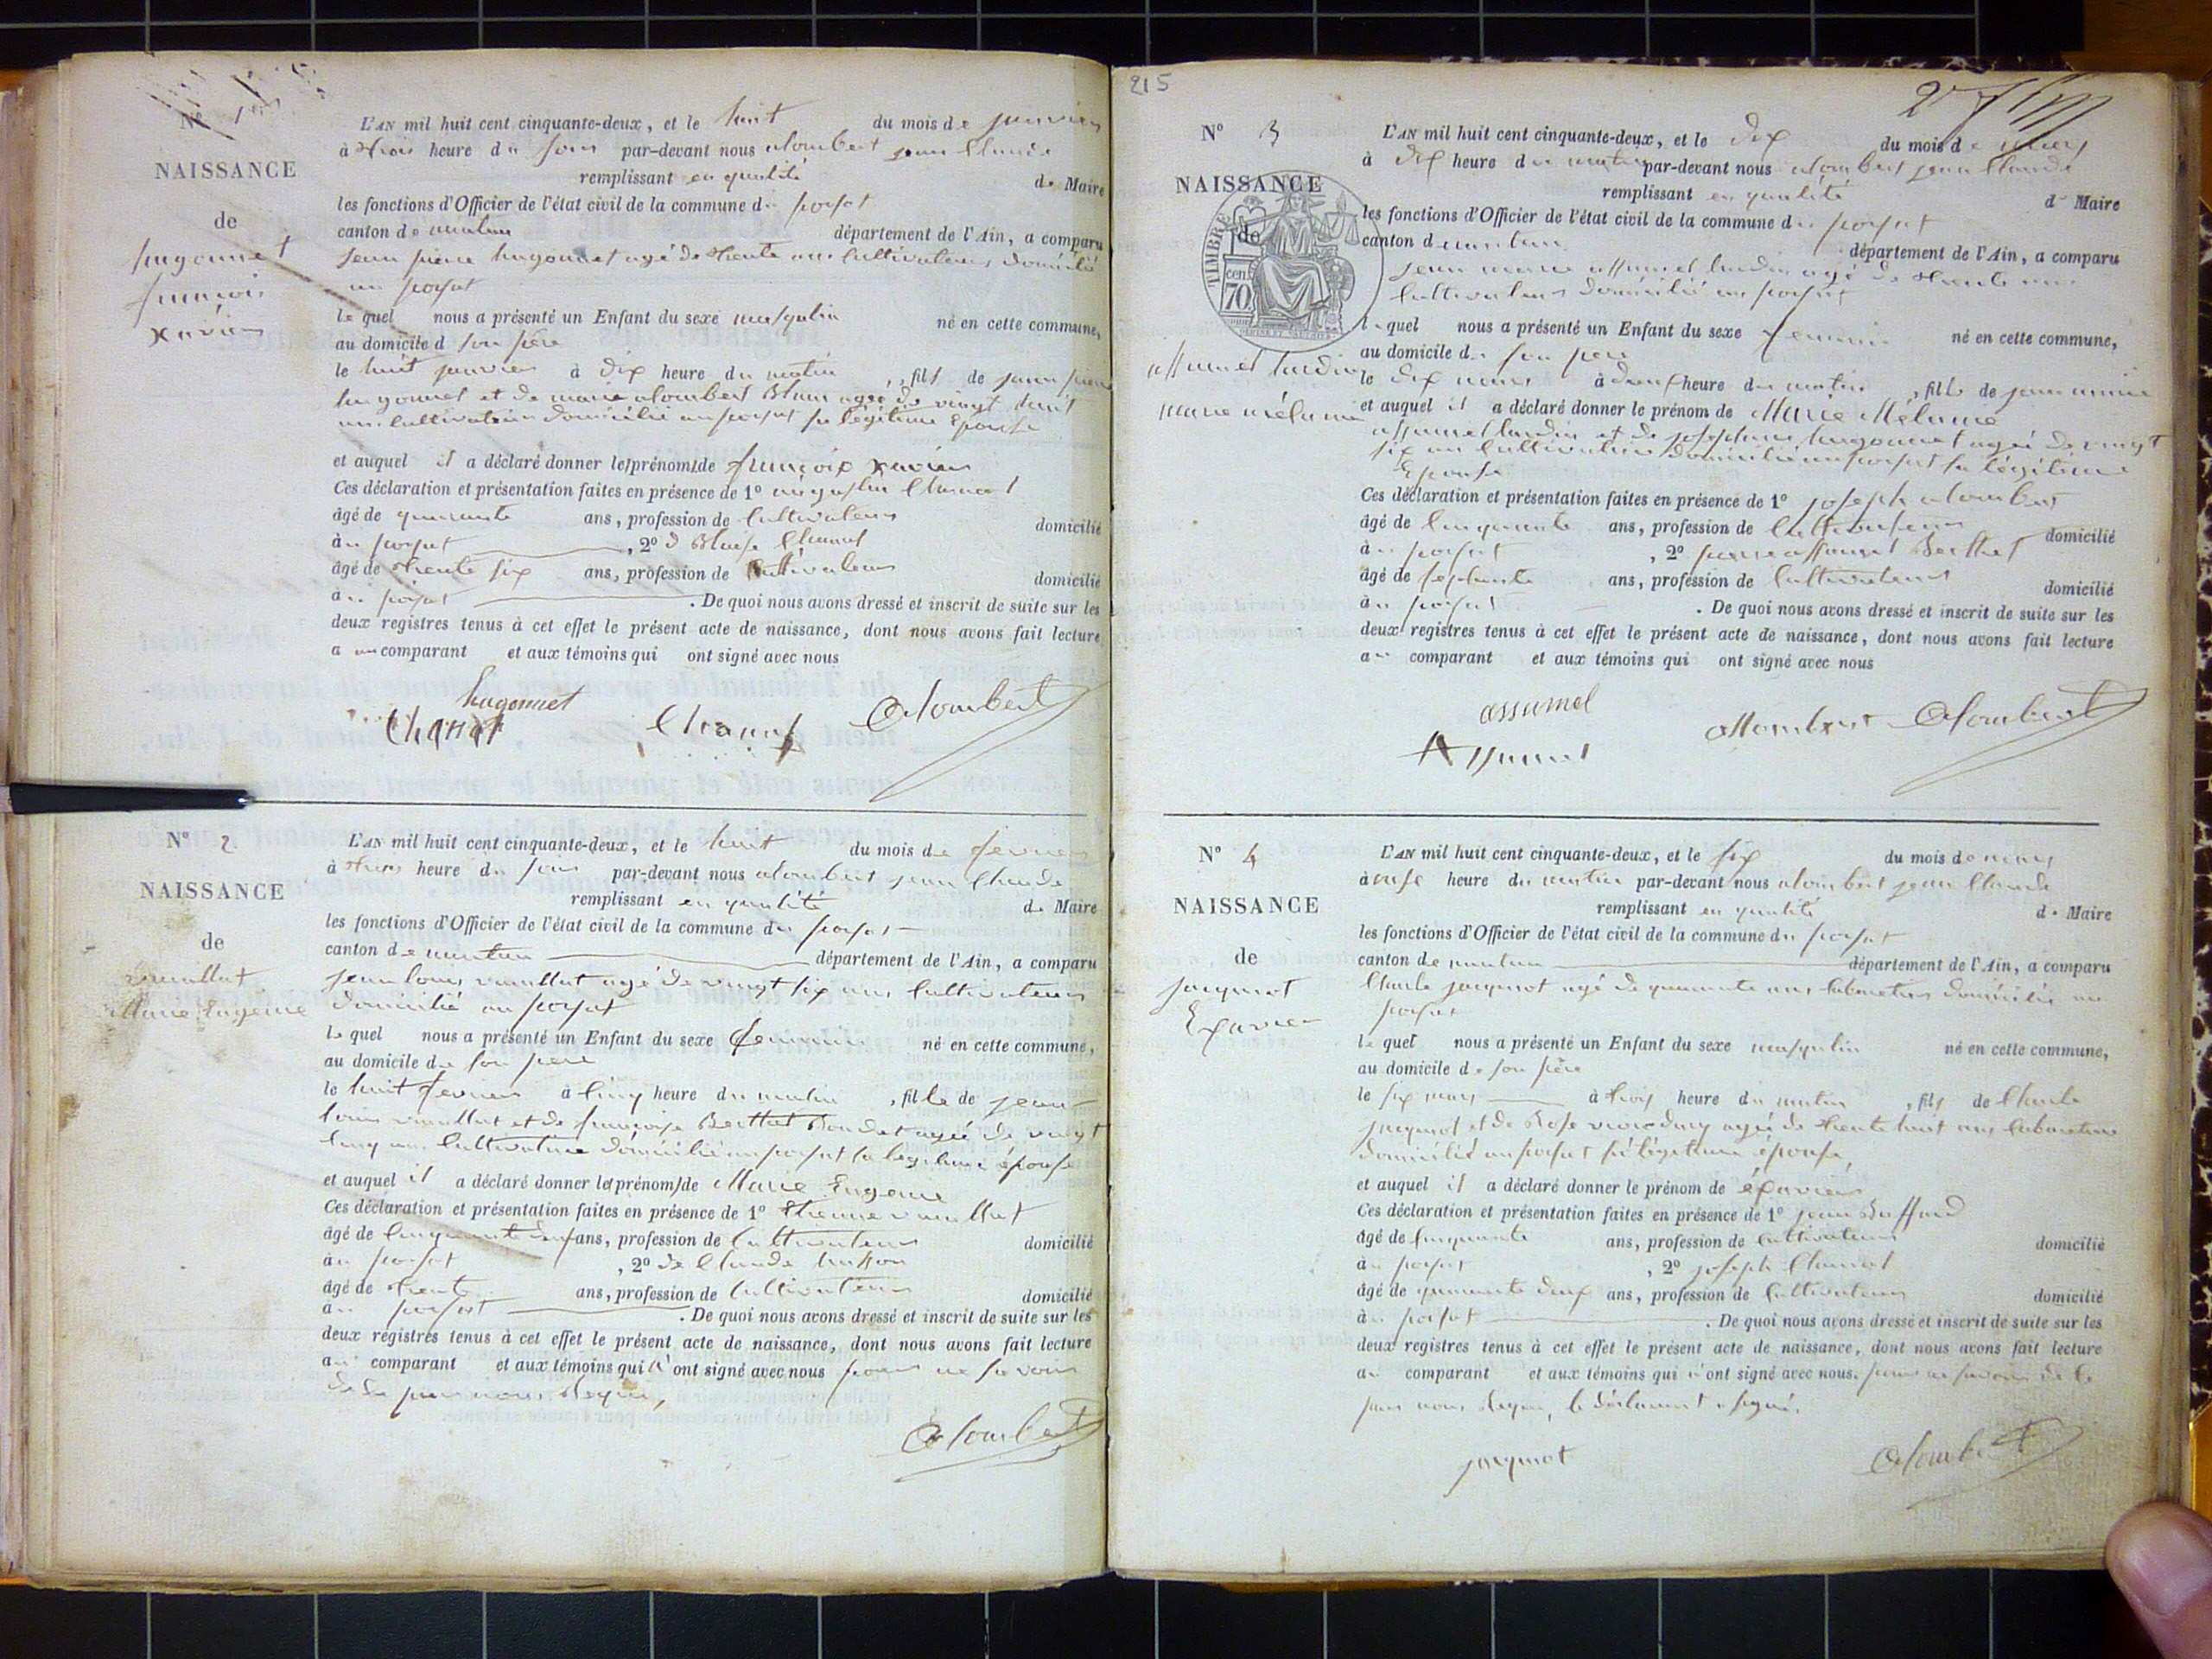 N° 1er
NAISSANCE
de
hugonnet
francois
xavier
L'AN mil huit cent cinquante-deux, et le huit du mois de janvier
à trois heure du soir par-devant nous alombert jean Claude
remplissant en qualité de Maire
les fonctions d'Officier de l'état civil de la commune du poysat
canton de nantua département de l'Ain, a comparu
jean pierre hugonnet agé de trente ans Cultivateur domicilié
au poysat
le quel nous a présenté un Enfant du sexe masqulin né en cette commune,
au domicile d son père
le huit janvier à dix heure du matin, fils de jean pierre
hugonnet et de marie alombert agée de vingt huit
ans Cultivatrice domicilié au poysat sa légitime Epouse
et auquel il a déclaré donner le prénom de françoix xavier
Ces déclaration et présentation faites en présence de 1°
âgé de quarante ans, profession de Cultivateur domicilié
au poysat, 2° d Blaise
âgé de trente six ans, profession de Cultivateur domicilié
au poysat. De quoi nous avons dressé et inscrit de suite sur les
deux registres tenus à cet effet le présent acte de naissance, dont nous avons fait lecture
a au comparant et aux témoins qui ont signé avec nous
hugonnet
Alombert
N° 2
NAISSANCE
de
vuaillat
Marie Eugenie
L'AN mil huit cent cinquante-deux, et le huit du mois de fevrier
à trois heure du soir par-devant nous alombert jean Claude
remplissant en qualité de Maire
les fonctions d'Officier de l'état civil de la commune du poysat
canton de nantua département de l'Ain, a comparu
jean louis vuaillat agé de vingt six ans Cultivateur
domicilié au poysat
le quel nous a présenté un Enfant du sexe feminin né en cette commune,
au domicile de son père
le huit fevrier à Cinq heure du matin, fille de jean
louis vuaillat et de françoise Berthet Bondet agée de vingt
Cinq ans Cultivatrice domicilié au poysat sa legitime épouse
et auquel il a déclaré donner le prénom de Marie Eugenie
Ces déclaration et présentation faites en présence de 1° Etienne vuaillat
âgé de Cinquante deux ans, profession de Cultivateur domicilié
au poysat, 2° de Claude
âgé de trente ans, profession de Cultivateur domicilié
au poysat. De quoi nous avons dressé et inscrit de suite sur les
deux registres tenus à cet effet le présent acte de naissance, dont nous avons fait lecture
au comparant et aux témoins qui n'ont signé avec nous pour ne savoir
de ce par nous
Alombert
215
N° 3
NAISSANCE
de
assumel lurdin
marie mélanie
TIMBRE
70 cen.
L'AN mil huit cent cinquante-deux, et le dix du mois de mars
à dix heure du matin par-devant nous alombert jean Claude
remplissant en qualité d Maire
les fonctions d'Officier de l'état civil de la commune du poysat
canton de nantua département de l'Ain, a comparu
jean marie assumel lurdin agé de trente ans
Cultivateur domicilié au poysat
le quel nous a présenté un Enfant du sexe feminin né en cette commune,
au domicile de son père
le dix mars à deux heure du matin, fille de jean marie
et auquel il a déclaré donner le prénom de Marie Mélanie
assumel lurdin et de josephine hugonnet agée de vingt
six ans Cultivatrice domicilié au poysat sa légitime
Epouse
Ces déclaration et présentation faites en présence de 1° joseph alombert
âgé de Cinquante ans, profession de Cultivateur domicilié
au poysat, 2° pierre assumel Berthet
âgé de septante ans, profession de Cultivateur domicilié
au poysat. De quoi nous avons dressé et inscrit de suite sur les
deux registres tenus à cet effet le présent acte de naissance, dont nous avons fait lecture
au comparant et aux témoins qui ont signé avec nous
assumel
Assumel
allombert Alombert
N° 4
NAISSANCE
de
jacquiot
Exavier
L'AN mil huit cent cinquante-deux, et le six du mois de mars
à onse heure du matin par-devant nous alombert jean Claude
remplissant en qualité de Maire
les fonctions d'Officier de l'état civil de la commune du poysat
canton de nantua département de l'Ain, a comparu
Claude jacquiot agé de quarante ans Cabaretier domicilié au
poysat
le quel nous a présenté un Enfant du sexe masqulin né en cette commune,
au domicile de son père
le six mars à trois heure du matin, fils de Claude
jacquiot et de Rose agée de trente huit ans Cabaretiere
domicilié au poysat sa légitime épouse,
et auquel il a déclaré donner le prénom de éxavier
Ces déclaration et présentation faites en présence de 1° jean Buffard
âgé de Cinquante ans, profession de Cultivateur domicilié
au poysat, 2° joseph
âgé de quarante deux ans, profession de Cultivateur domicilié
au poysat. De quoi nous avons dressé et inscrit de suite sur les
deux registres tenus à cet effet le présent acte de naissance, dont nous avons fait lecture
au comparant et aux témoins qui n'ont signé avec nous. pour ne savoir de ce
par nous le déclarant a signé.
jacquiot
Alombert